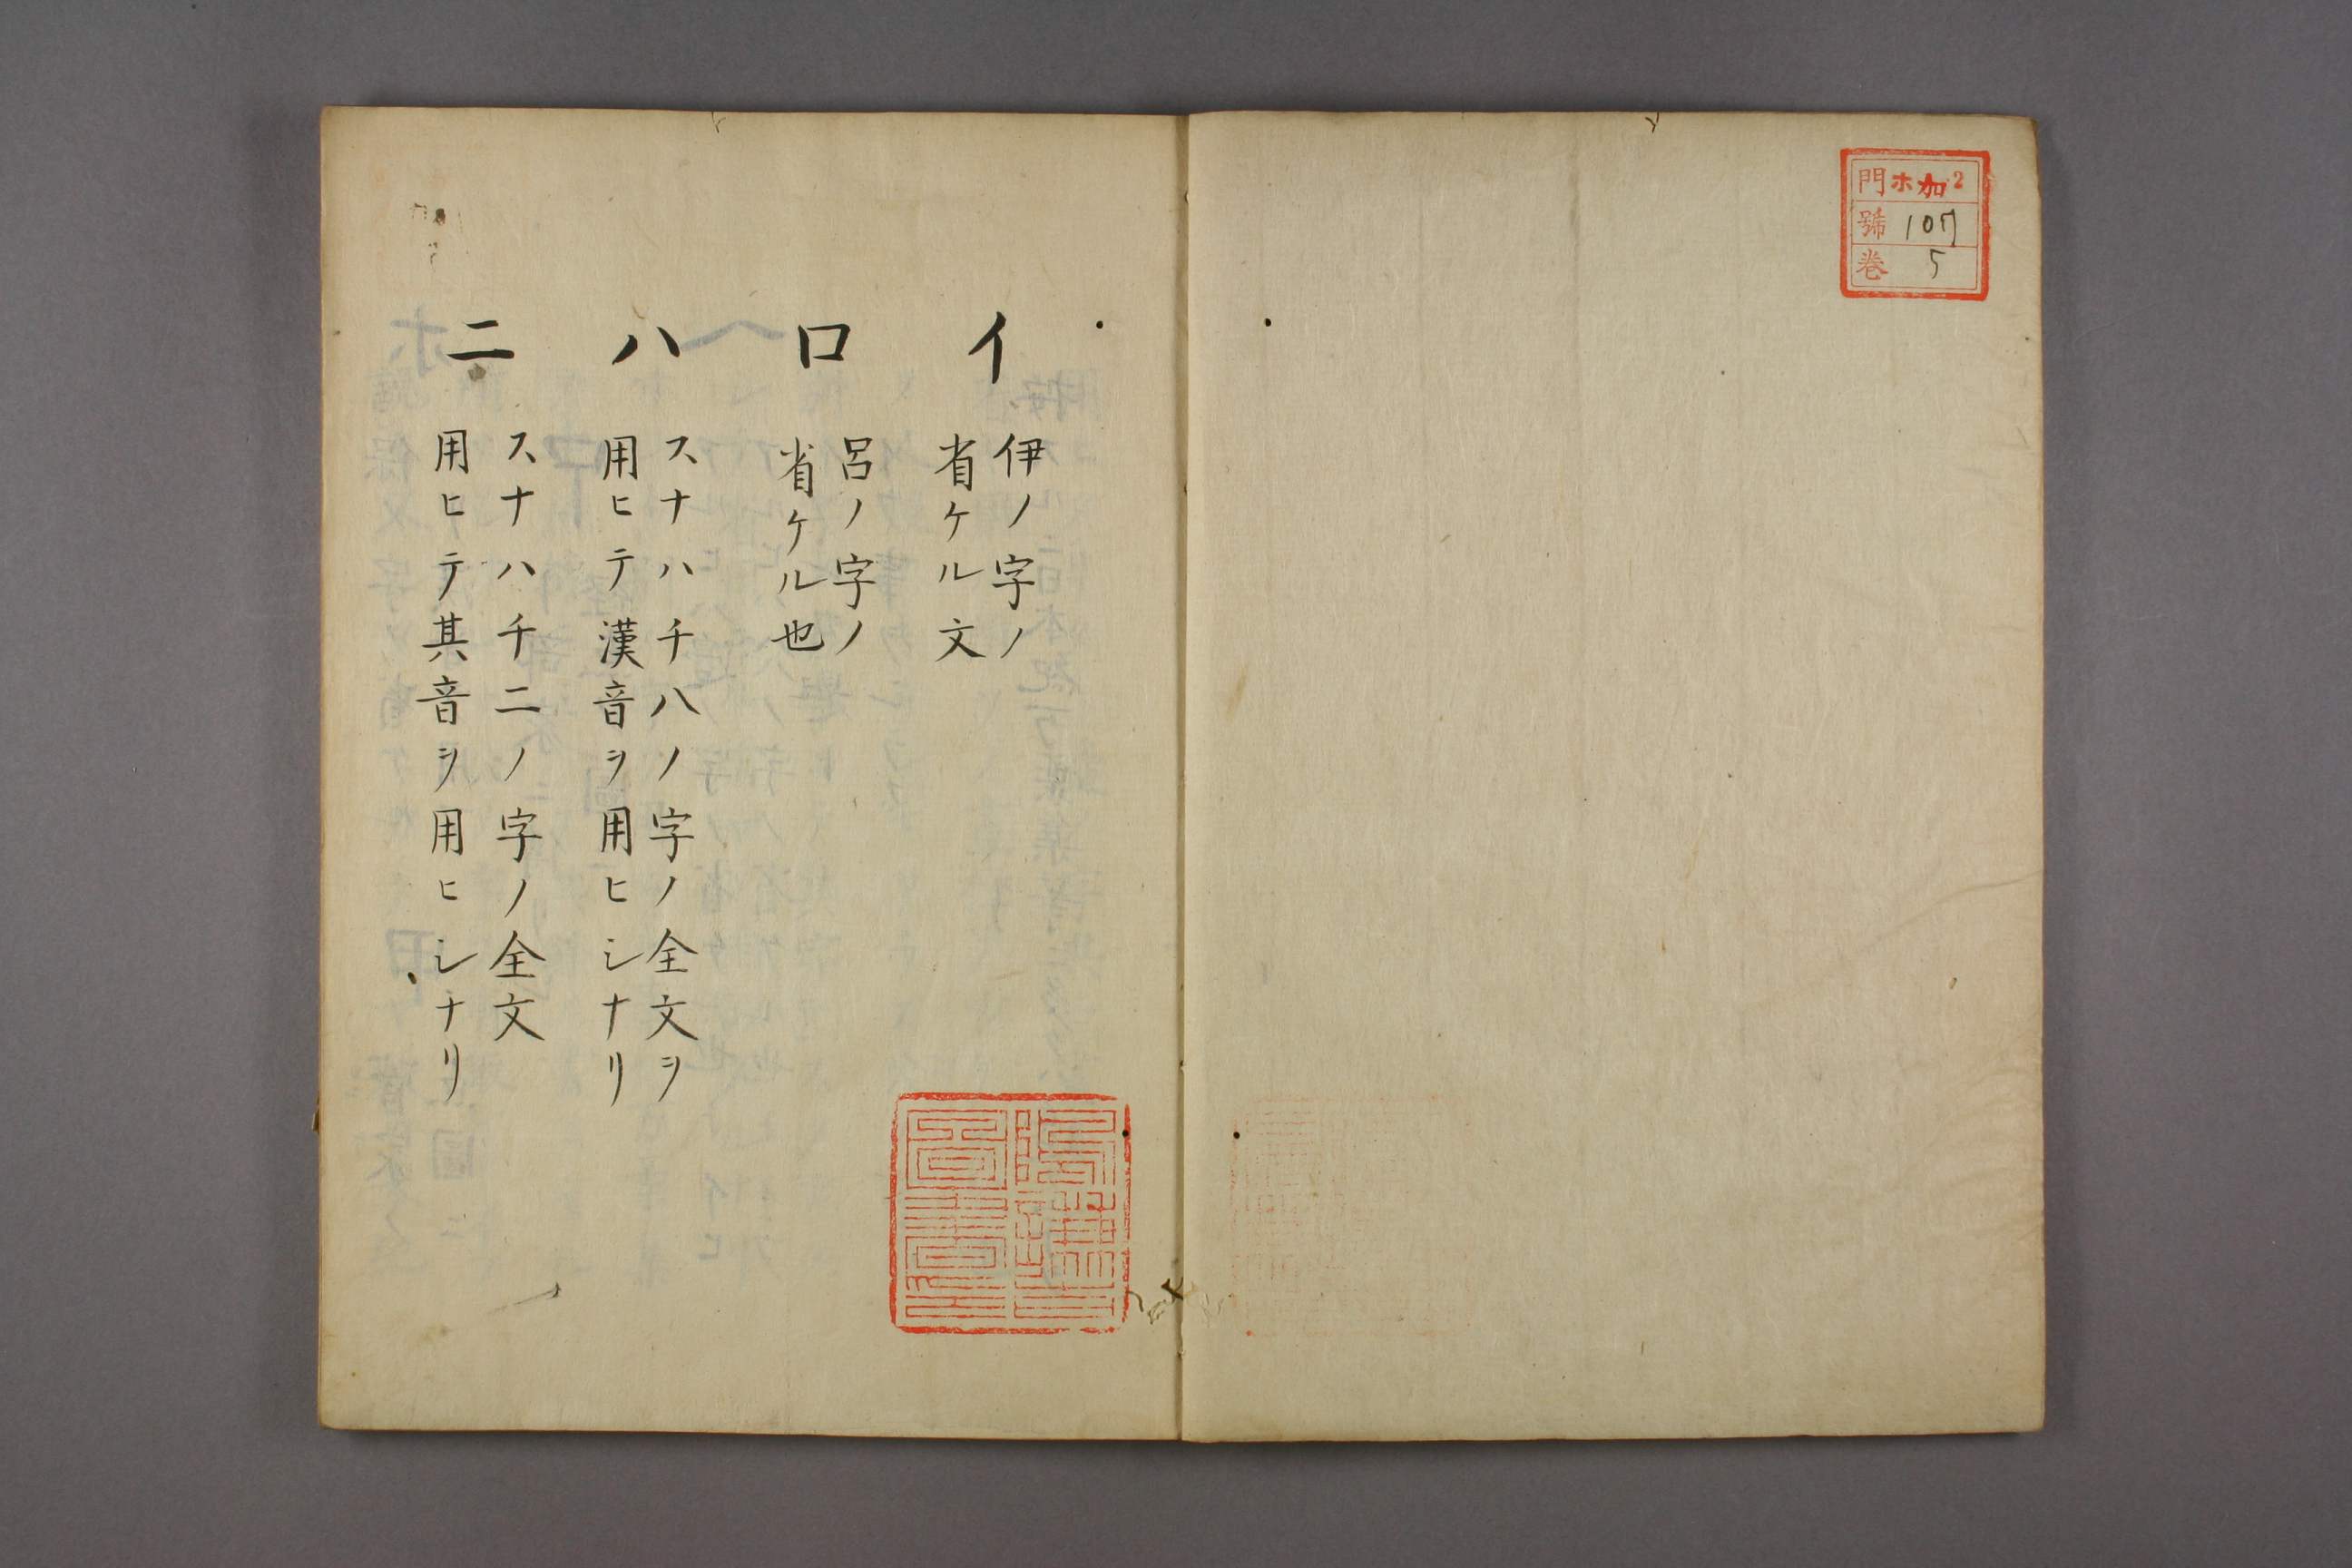 門 ホ加2
號 107
巻 5
イ
伊ノ字ノ
省ケル文
ロ
呂ノ字ノ
省ケル也
ハ
スナハチ八ノ字ノ全文ヲ
用ヒテ漢音ヲ用ヒシナリ
ニ
スナハチ二ノ字ノ全文
用ヒテ其音ヲ用ヒシナリ